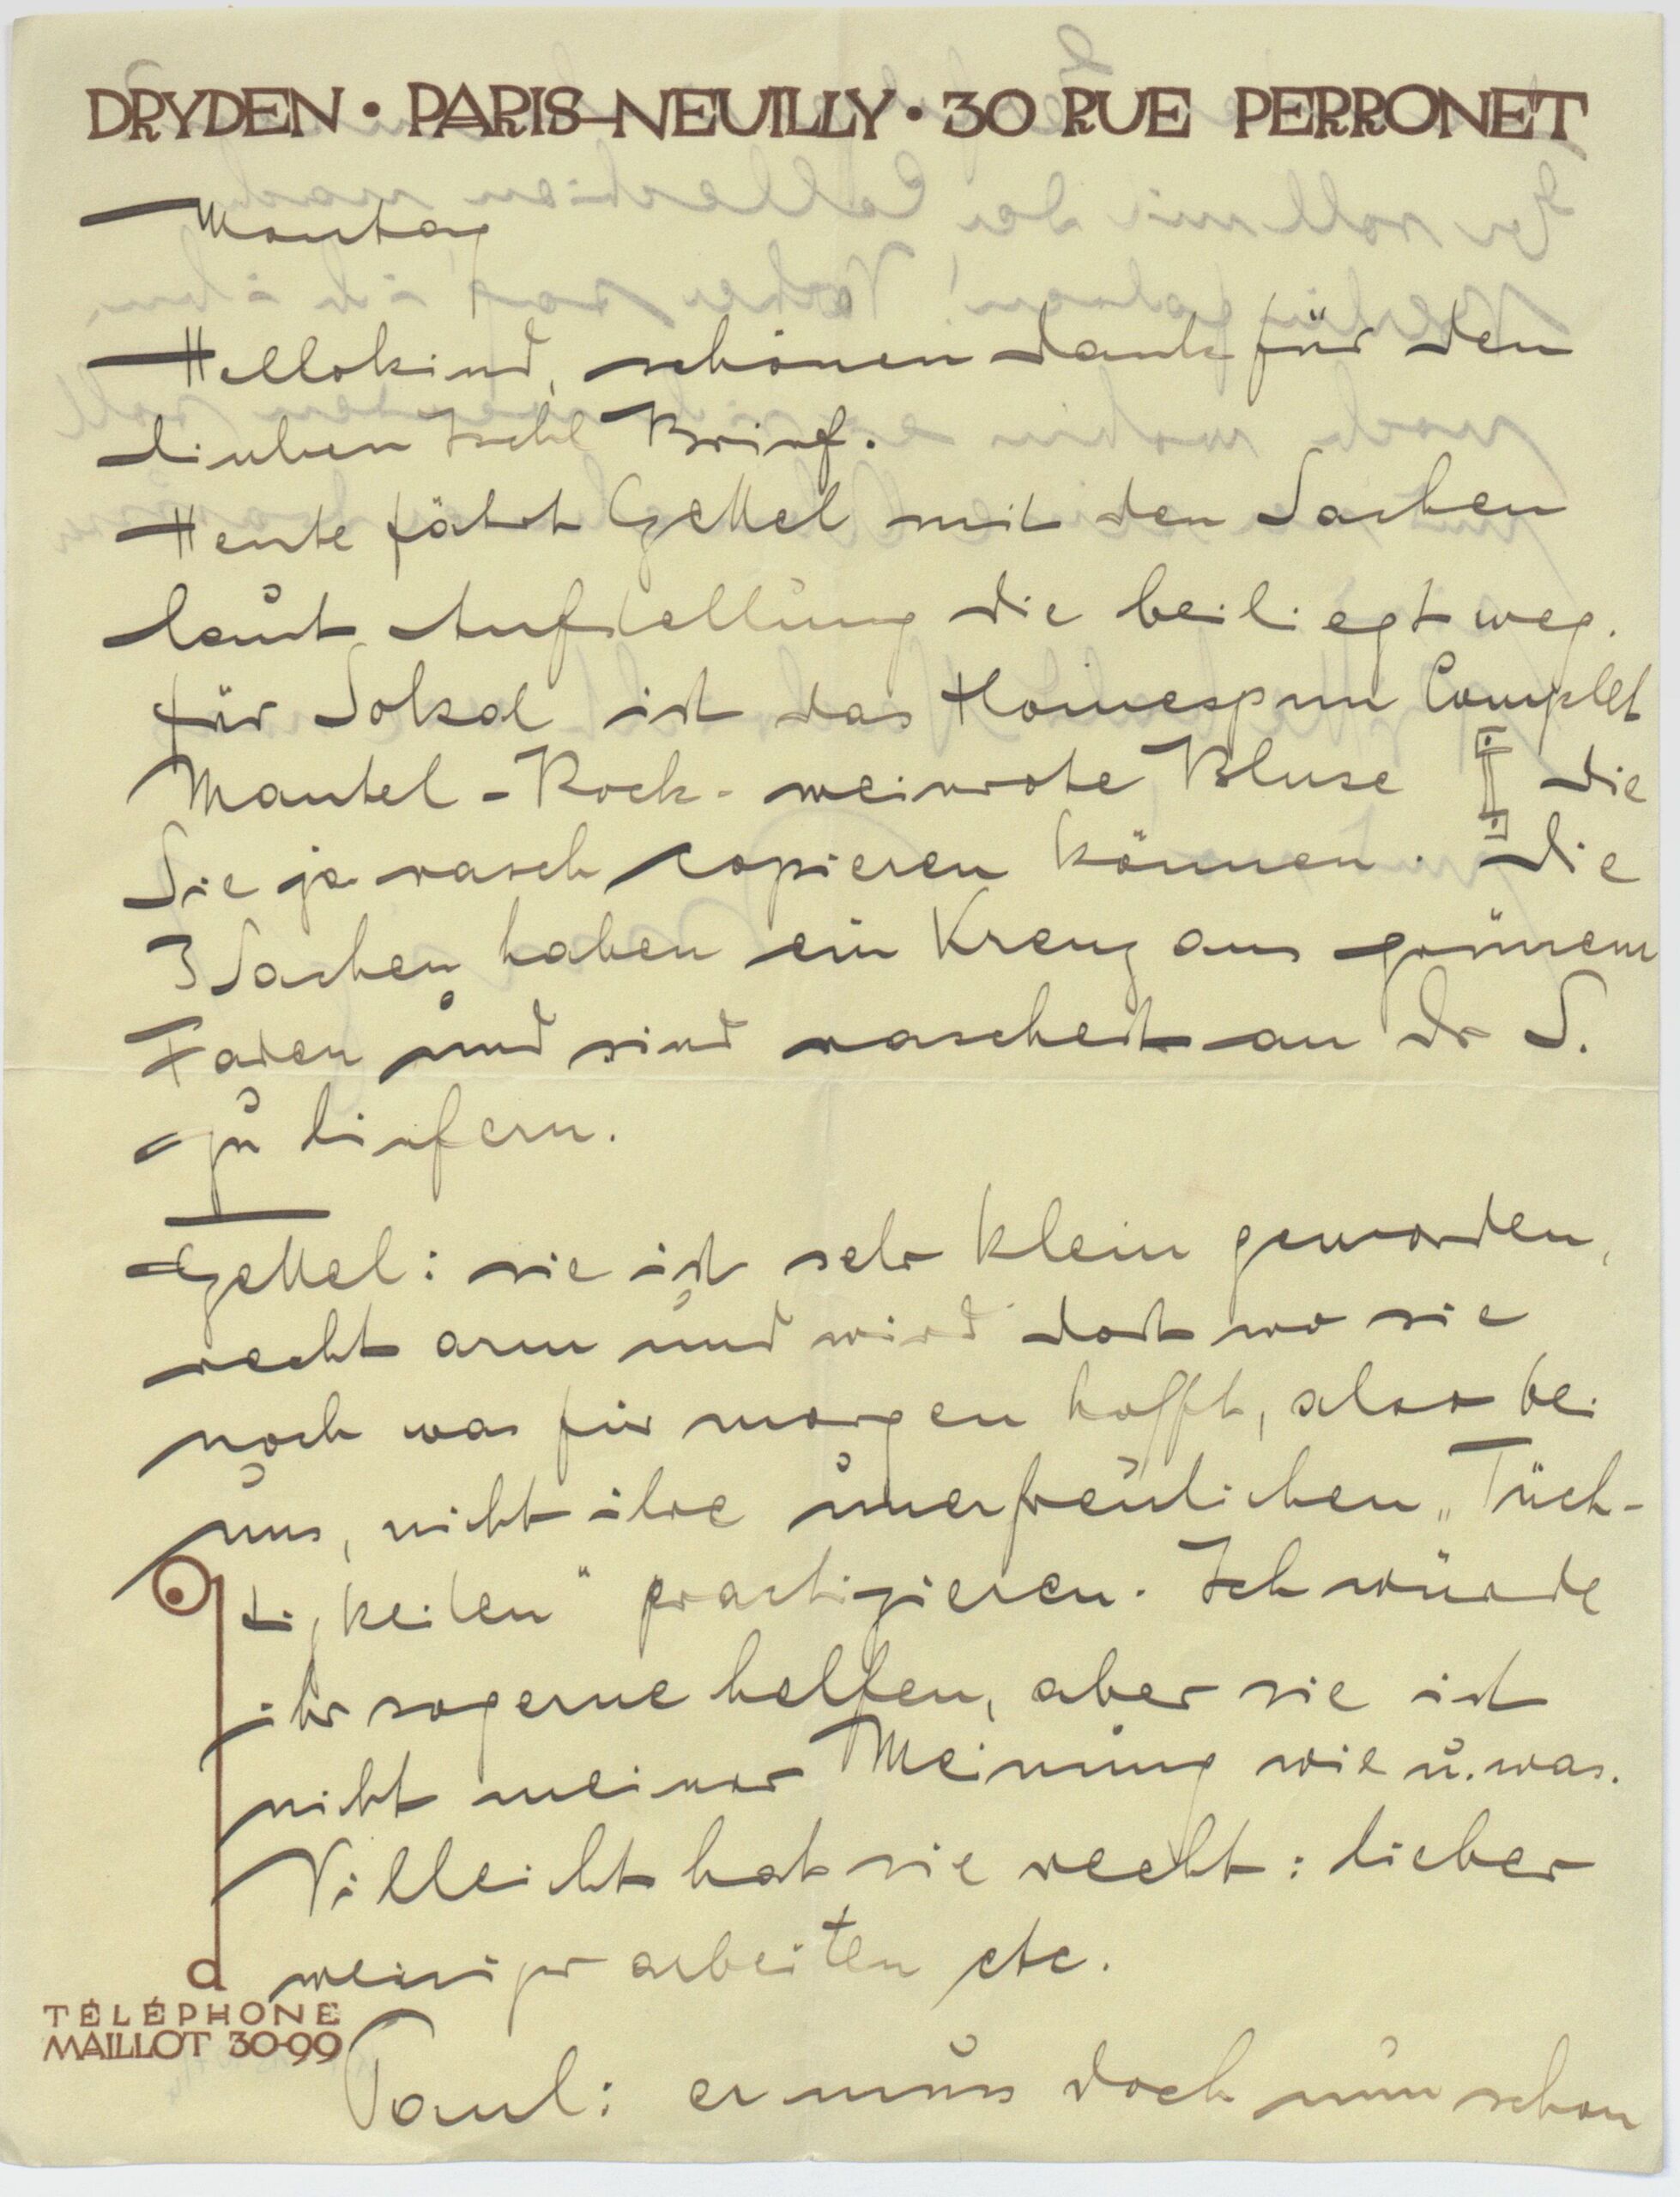 DRYDEN • PARIS-NEUILLY • 30 RUE PERRONET
Montag
Hellokind, schönen Dank für den
lieben Ischl Brief.
Heute fährt Gettel mit den Sachen
laut Aufstellung die beiliegt weg.
für Sokal ist das Homespun Complet
Mantel - Rock - weinrote Bluse die
Sie ja rasch copieren können. Die
3 Sachen haben ein Kreuz aus grünem
Faden und sind raschest an Dr S.
zu liefern.
Gettel: sie ist sehr klein geworden,
recht arm und wird dort wo sie
noch was für morgen hofft, also bei
uns, nicht ihre unerfreulichen „Tüch-
tigkeiten" practizieren. Ich würde
ihr so gerne helfen, aber sie ist
nicht meiner Meinung wie u. was.
Villeicht hat sie recht: lieber
weniger arbeiten etc.
Paul: er muss doch nun schon
d
TÉLÉPHONE
MAILLOT 30-99